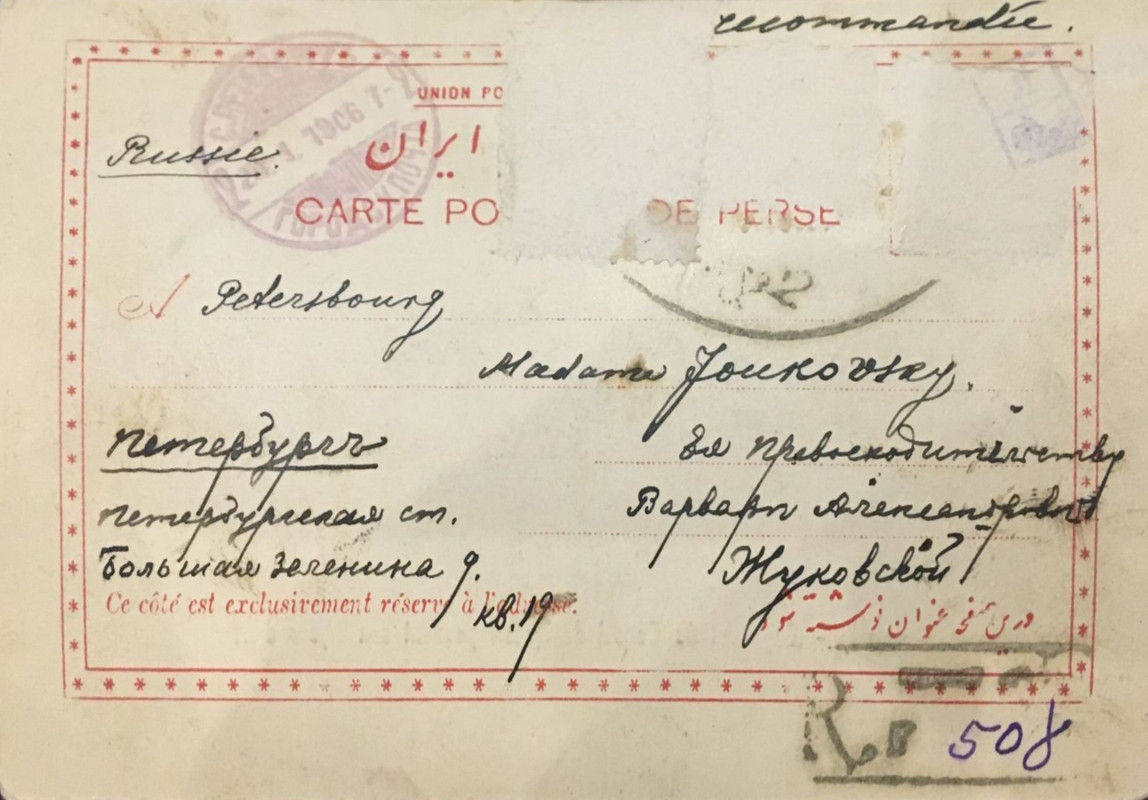 recommandée.
UNION PO
Russie.
ایران
CARTE PO DE PERSE
1906
A Petersbourg
Madame Joukovsky.
Петербургъ
Ея Превосходительству
Петербургская ст.
Варварѣ Александровнѣ
Большая Зеленина д.
Жуковской
Ce côté est exclusivement réservé à l'adresse.
кв. 19
R 508